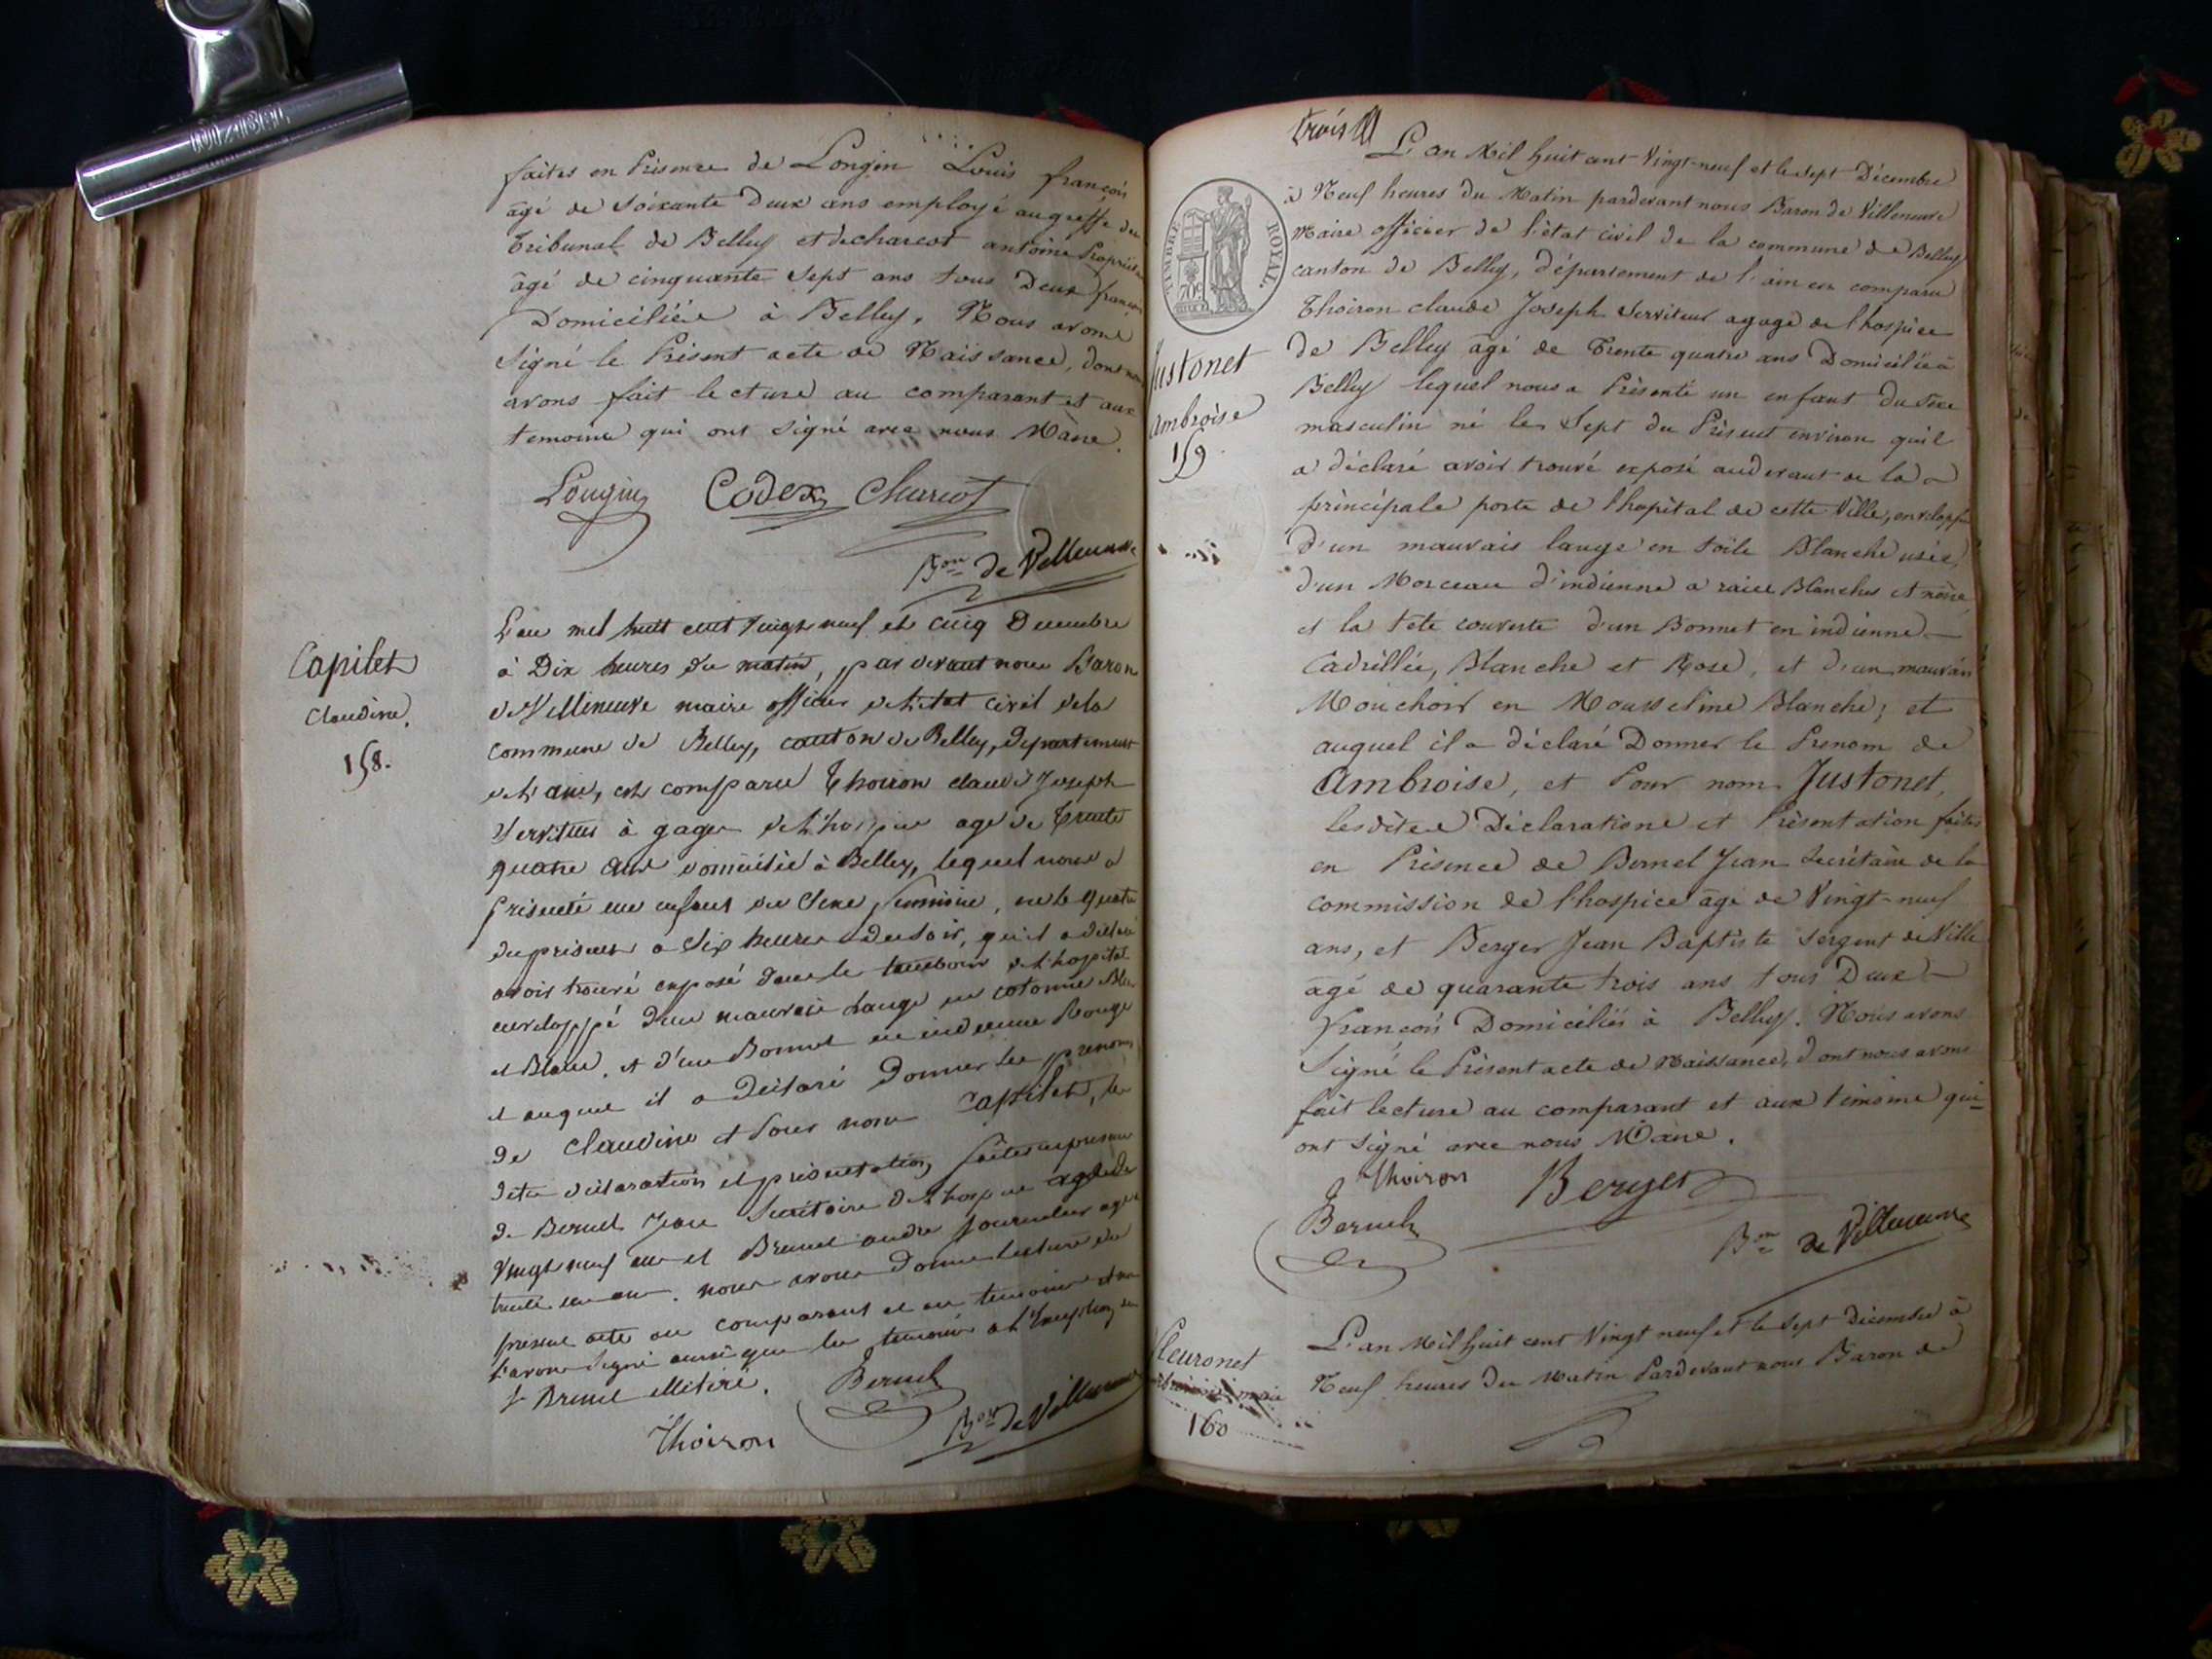 faites en Présence de Longin Louis françois
âgé de soixante Deux ans employé au greffe du
Tribunal de Belley et de charcot antoine Propriétaire
âgé de cinquante sept ans tous Deux françois
Domiciliée à Belley. Nous avons
Signé le Présent acte de Naissance, dont nous
avons fait lecture au comparant et aux
temoins qui ont signé avec nous Maire.
Longin Codex Charcot
Bon de Villeneuve
Capilet
Claudine.
158.
L'an mil huit cent vingt neuf et le cinq Decembre
à Dix heures du matin, par devant nous Baron
de Villeneuve maire officier de l'etat civil de la
commune de Belley, canton de Belley, departement
de l'ain, est comparu Thoiron claude Joseph
Serviteur à gages de l'hospice agé de trente
quatre ans domicilié à Belley, lequel nous a
présenté un enfant du sexe feminin, né le quatre
du présent a six heures du soir, qu'il a déclaré
avoir trouvé exposé dans le tambour de l'hopital
enveloppé d'un mauvais Lange en cotonne Bleu
et Blanc, et d'un Bonnet en indienne Rouge
et auquel il a déclaré Donner les prenoms
de Claudine et Pour nom Capilet, les
dites déclaration et présentation faites en présence
de Bernel Jean Secrétaire de l'hospice agé de
Vingt neuf ans et Brunel andré journalier agé
trente un ans. nous avons donné lecture du
présent acte au comparant et au temoins et nous
l'avons signé ainsi que les temoins a l'exception du
Sr Brunel illitéré.
Bernel
Thoiron
Bon de Villeneuve
trois
L'an Mil huit cent Vingt-neuf et le sept Décembre
à Neuf heures du Matin pardevant nous Baron de Villeneuve
Maire officier de l'état civil de la commune de Belley
canton de Belley, département de l'ain est comparu
Thoiron claude Joseph Serviteur a gage de l'hospice
de Belley âgé de Trente quatre ans Domiciliée à
Belley lequel nous a Présenté un enfant du sexe
masculin né le Sept du Présent environ qu'il
a déclaré avoir trouvé exposé audevant de la
principale porte de l'hopital de cette Ville, enveloppé
d'un mauvais lange en toile Blanche usée,
d'un Morceau d'indienne a raies Blanches et noire
et la tête couverte d'un Bonnet en indienne
Cadrillée, Blanche et Rose, et d'un mauvais
Mouchoir en Mousseline Blanche, et
auquel il a déclaré Donner le Prenom de
Ambroise, et Pour nom Justonet,
lesdites Déclarations et Présentation faites
en Présence de Bernel Jean Secrétaire de la
commission de l'hospice âgé de Vingt-neuf
ans, et Berger Jean Baptiste Sergent de Ville
âgé de quarante trois ans tous Deux
François Domiciliés à Belley. Nous avons
Signé le Présent acte de Naissance, dont nous avons
fait lecture au comparant et aux témoins qui
ont signé avec nous Maire.
TIMBRE ROYAL.
Justonet
Ambroise
159
Thoiron Berger
Bernel
Bon de Villeneuve
Fleuronet
160
L'an Mil huit cent Vingt neuf et le Sept Décembre à
Neuf heures du Matin Pardevant nous Baron de